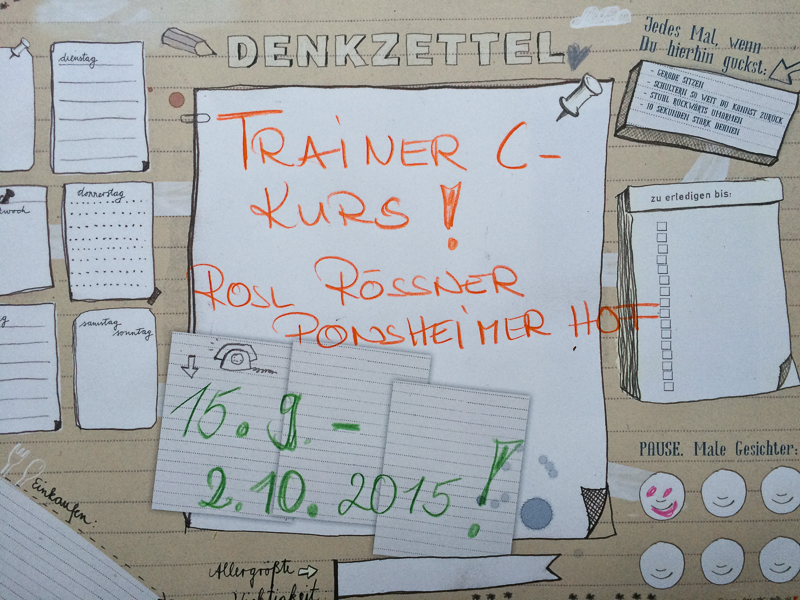 DENKZETTEL
Jedes Mal, wenn
Du hierhin guckst:
- GERADE SITZEN
- SCHULTERN SO WEIT DU KANNST ZURÜCK
- STUHL RÜCKWÄRTS UMARMEN
- 10 SEKUNDEN STARK DEHNEN
dienstag
TRAINER C-
KURS!
donnerstag
zu erledigen bis:
ROSL RÖSSNER
PONSHEIMER HOF
samstag
sonntag
15.9. -
2.10.2015!
PAUSE. Male Gesichter:
Einkaufen:
Allergrößte
Wichtigkeit